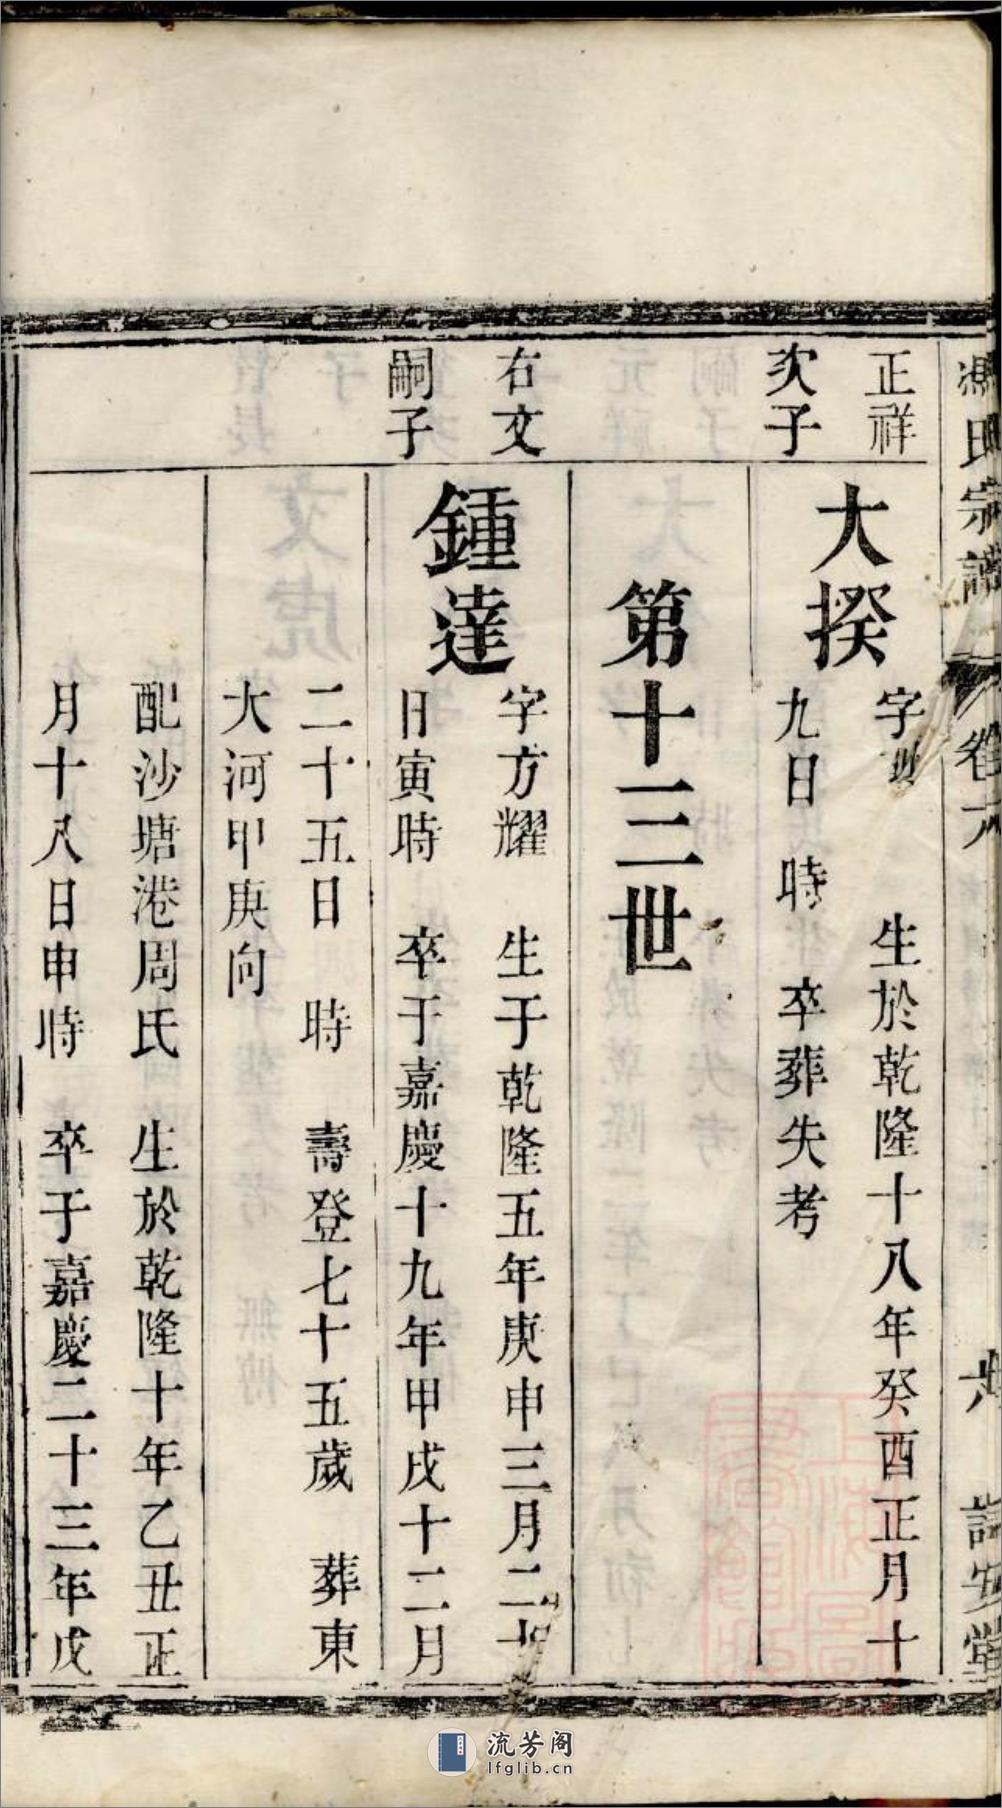 馮氏宗譜
卷六
六
詩安堂
正祥
次子
大揆
字 生於乾隆十八年癸酉正月十
九日 時 卒葬失考
第十三世
右文
嗣子
鍾達
字方耀 生于乾隆五年庚申三月二十
日寅時 卒于嘉慶十九年甲戌十二月
二十五日 時 壽登七十五歲 葬東
大河甲庚向
配沙塘港周氏 生於乾隆十年乙丑正
月十八日申時 卒于嘉慶二十三年戊
流芳阁
lfglib.cn